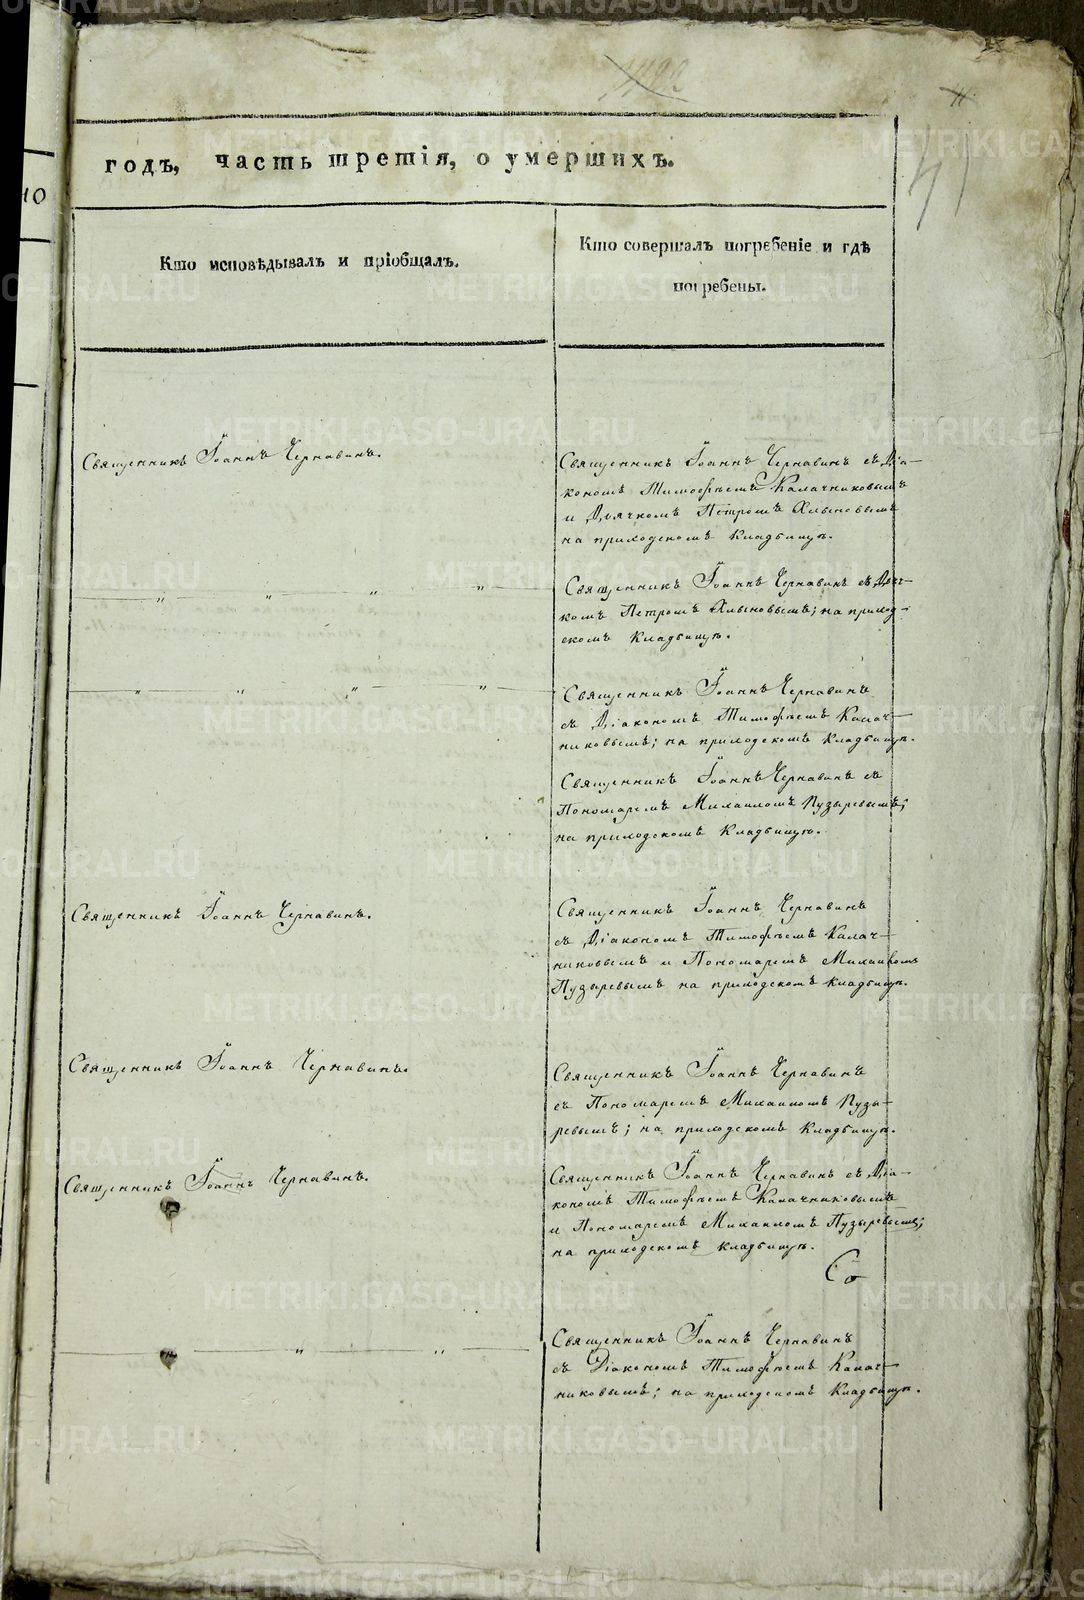 годъ, часть третія, о умершихъ.
10
Кто исповѣдывалъ и пріобщалъ.
Кто совершалъ погребеніе и гдѣ
погребены.
Священникъ Іоаннъ Чернавинъ.
Священникъ Іоаннъ Чернавинъ съ Діа-
кономъ Тимофѣемъ Калачниковымъ
и Дьячкомъ Петромъ Хлыновымъ
на приходскомъ кладбищѣ.
— „ „ „ „
Священникъ Іоаннъ Чернавинъ съ Дьяч-
комъ Петромъ Хлыновымъ; на приход-
скомъ кладбищѣ.
— „ „ „ „
Священникъ Іоаннъ Чернавинъ
съ Діакономъ Тимофѣемъ Калач-
никовымъ; на приходскомъ кладбищѣ.
Священникъ Іоаннъ Чернавинъ съ
Пономаремъ Михаиломъ Пузыревымъ;
на приходскомъ кладбищѣ.
Священникъ Іоаннъ Чернавинъ.
Священникъ Іоаннъ Чернавинъ
съ Діакономъ Тимофѣемъ Калач-
никовымъ и Пономаремъ Михаиломъ
Пузыревымъ на приходскомъ кладбищѣ.
Священникъ Іоаннъ Чернавинъ.
Священникъ Іоаннъ Чернавинъ
съ Пономаремъ Михаиломъ Пузы-
ревымъ; на приходскомъ кладбищѣ.
Священникъ Іоаннъ Чернавинъ.
Священникъ Іоаннъ Чернавинъ съ Діа-
кономъ Тимофѣемъ Калачниковымъ
и Пономаремъ Михаиломъ Пузыревымъ;
на приходскомъ кладбищѣ.
Со
— „ „ „
Священникъ Іоаннъ Чернавинъ
съ Діакономъ Тимофѣемъ Калач-
никовымъ; на приходскомъ кладбищѣ.
METRIKI.GASO-URAL.RU